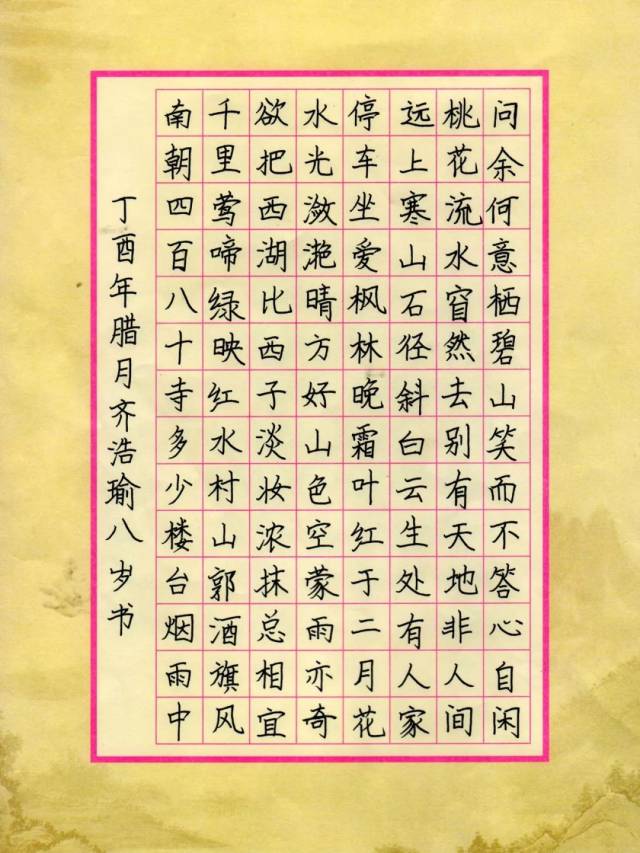 问余何意栖碧山笑而不答心自闲
桃花流水窅然去别有天地非人间
远上寒山石径斜白云生处有人家
停车坐爱枫林晚霜叶红于二月花
水光潋滟晴方好山色空蒙雨亦奇
欲把西湖比西子淡妆浓抹总相宜
千里莺啼绿映红水村山郭酒旗风
南朝四百八十寺多少楼台烟雨中
丁酉年腊月齐浩瑜八岁书